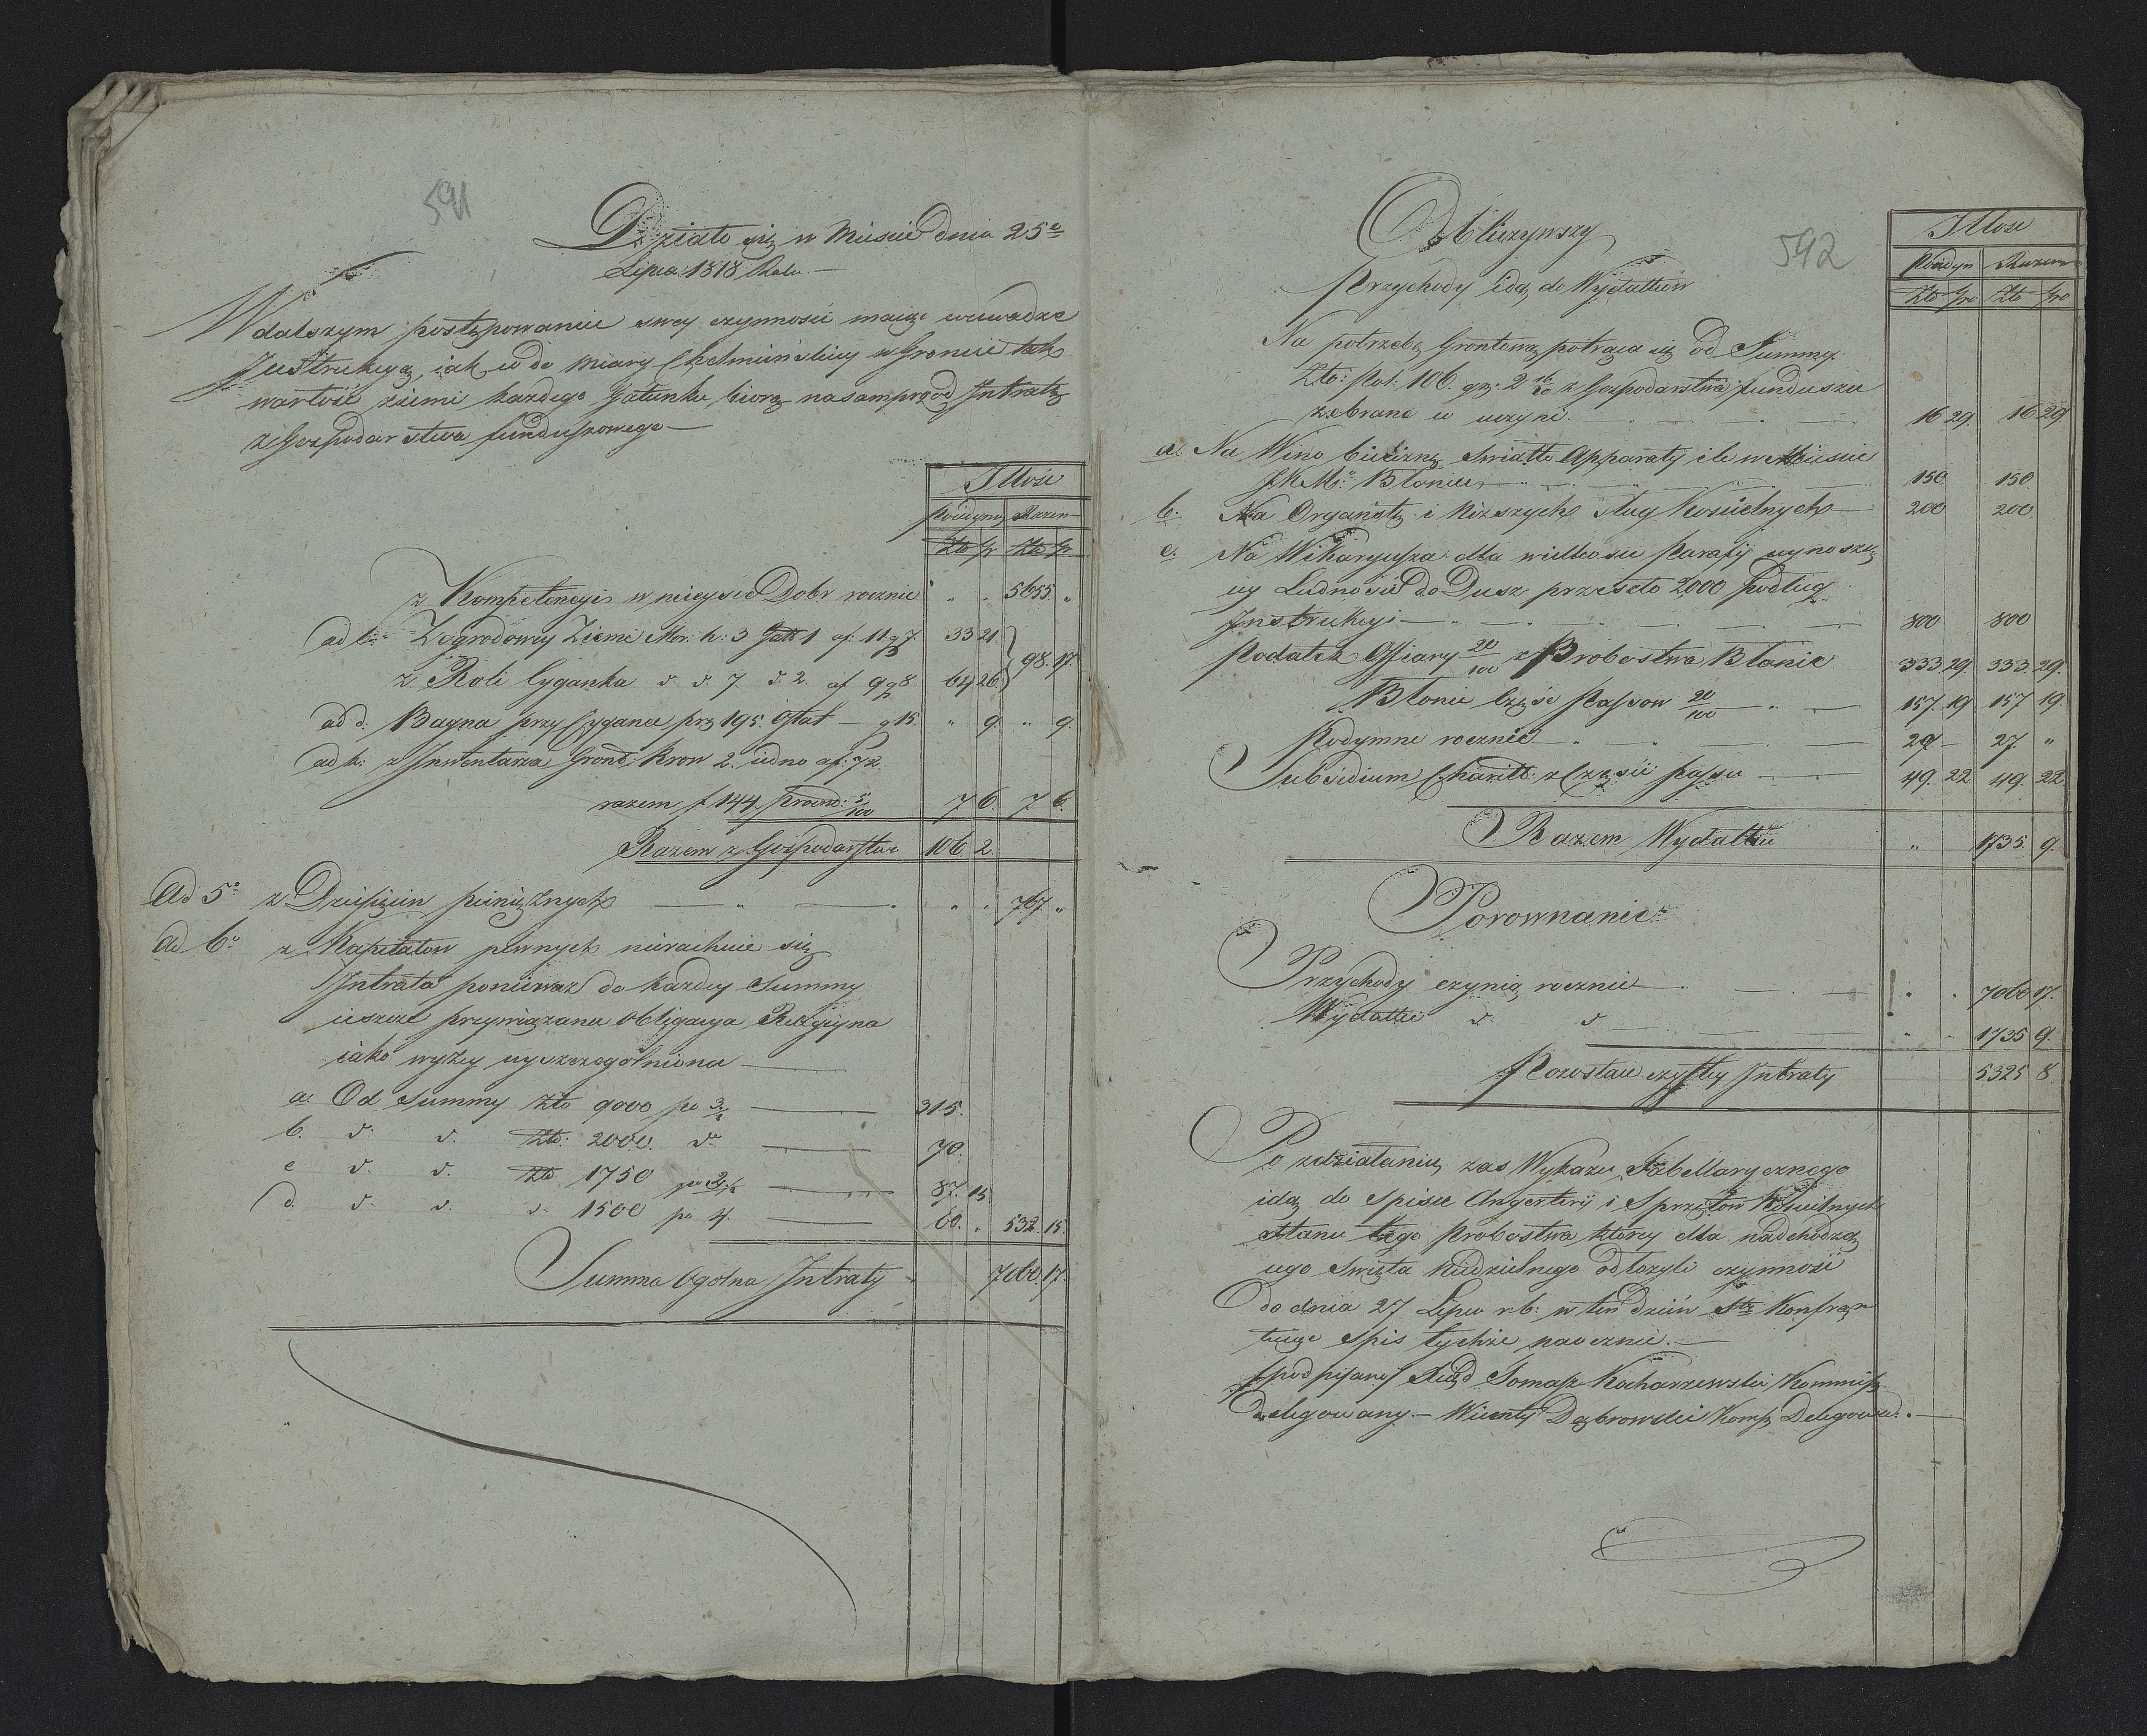 591
Działo się w Mieście dnia 25º
Lipca 1818 Roku. —
W dalszym postępowaniu swey czynności maiąc w uwadze
Justrukcyą, iak co do miary Chełmińskiey w Groncie tak
wartość ziemi każdego Gatunku, biorą nasamprzód Intratę
z Gospodarstwa funduszowego —
Ilość
Poiedyncz Razem
Zło gr Zło gr
z Kompetencyi w mieysce Dobr rocznie " . 5655 "
ad b: Zagrodowey Ziemi Mor: h: 3 Gatt 1 af: 11 g 7. 33 21
98. 17.
z Roli Cyganka d. d. 7 d. 2. af 9 g 8 64 26
ad d. Bagna przy Cygance prę 195. Ostat — g 15 " 9 " 9.
ad h: z Inwentarza Grond: Krow 2. iedno af: 72
razem f 144. procnd: 5/100 7 6. 7 6.
Razem z Gospodarstwa 106 2.
Ad 5º z Dziesięcin pieniężnych — " — . " . 767. "
Ad 6º z Kapitałow pewnych nierachuie się
Intrata ponieważ do każdey Summy
ieszcze przywiązana obligacya Religiyna
iako wyżey wyszczegolniona —
a. Od Summy Zło 9000 po 3½ — 315.
b. d. d. Zło: 2000. dº — 70.
c d. d. Zło 1750 po — 87. 15
d. d. d. d. 1500 po 4. — 60. . 532. 15.
Summa Ogolna Intraty 7060. 17.
592
Obliczywszy
Przychody idą do Wydatkow
Ilość
Poiedyn Razem
Zło Gro Zło Gro
Na potrzebę Grontową potrąca się od Summy.
Zło: Pol: 106. gr. 2 16/100 z Gospodarstwa funduszu
zebrane co uczyni. — 16 29. 16 29
a. Na Wino bieliznę Swiatło Apparaty ile w Mieście
Błoniu — 150 150.
b. Na Organistę i Niższych Sług Kościelnych — 200 200
c. Na Wikaryusza dla wielkości Parafij wynoszą
cy Ludności do Dusz przeszło 2,000 podług
Instrukcyi — 800 800
Podatek Ofiary 20/100 z Probostwa Błonie 333 29. 333. 29.
Błonie Część Passow 20/100 — 157. 19 157 19.
Podymne rocznie — 27 — 27. "
Subsidium Charitt: z Części Passu — 49. 22 49. 22.
Razem Wydatku " 1735. 9.
Porownanie
Przychody czynią rocznie — " . 7060 17.
Wydatki d. d — " . 1735 9.
Pozostaie czystey Intraty 5325 8
Po zdziałaniu zas Wykazu Tabellarycznego
idą do Spisu Angenterij i Sprzętow Kościelnych
stanu tego Probostwa ktorey dla nadchodzą
cego Swięta Niedzielnego odłożyli czynność
do dnia 27 Lipca r. b: w ten dzień Sta Konfrąn
tuiąc Spis tychże naocznie. —
(podpisano) Xiądz Tomasz Kocharzewski Kommiss
Delegowany. — Wicenty Dąbrowski Komss Delegowa: . —